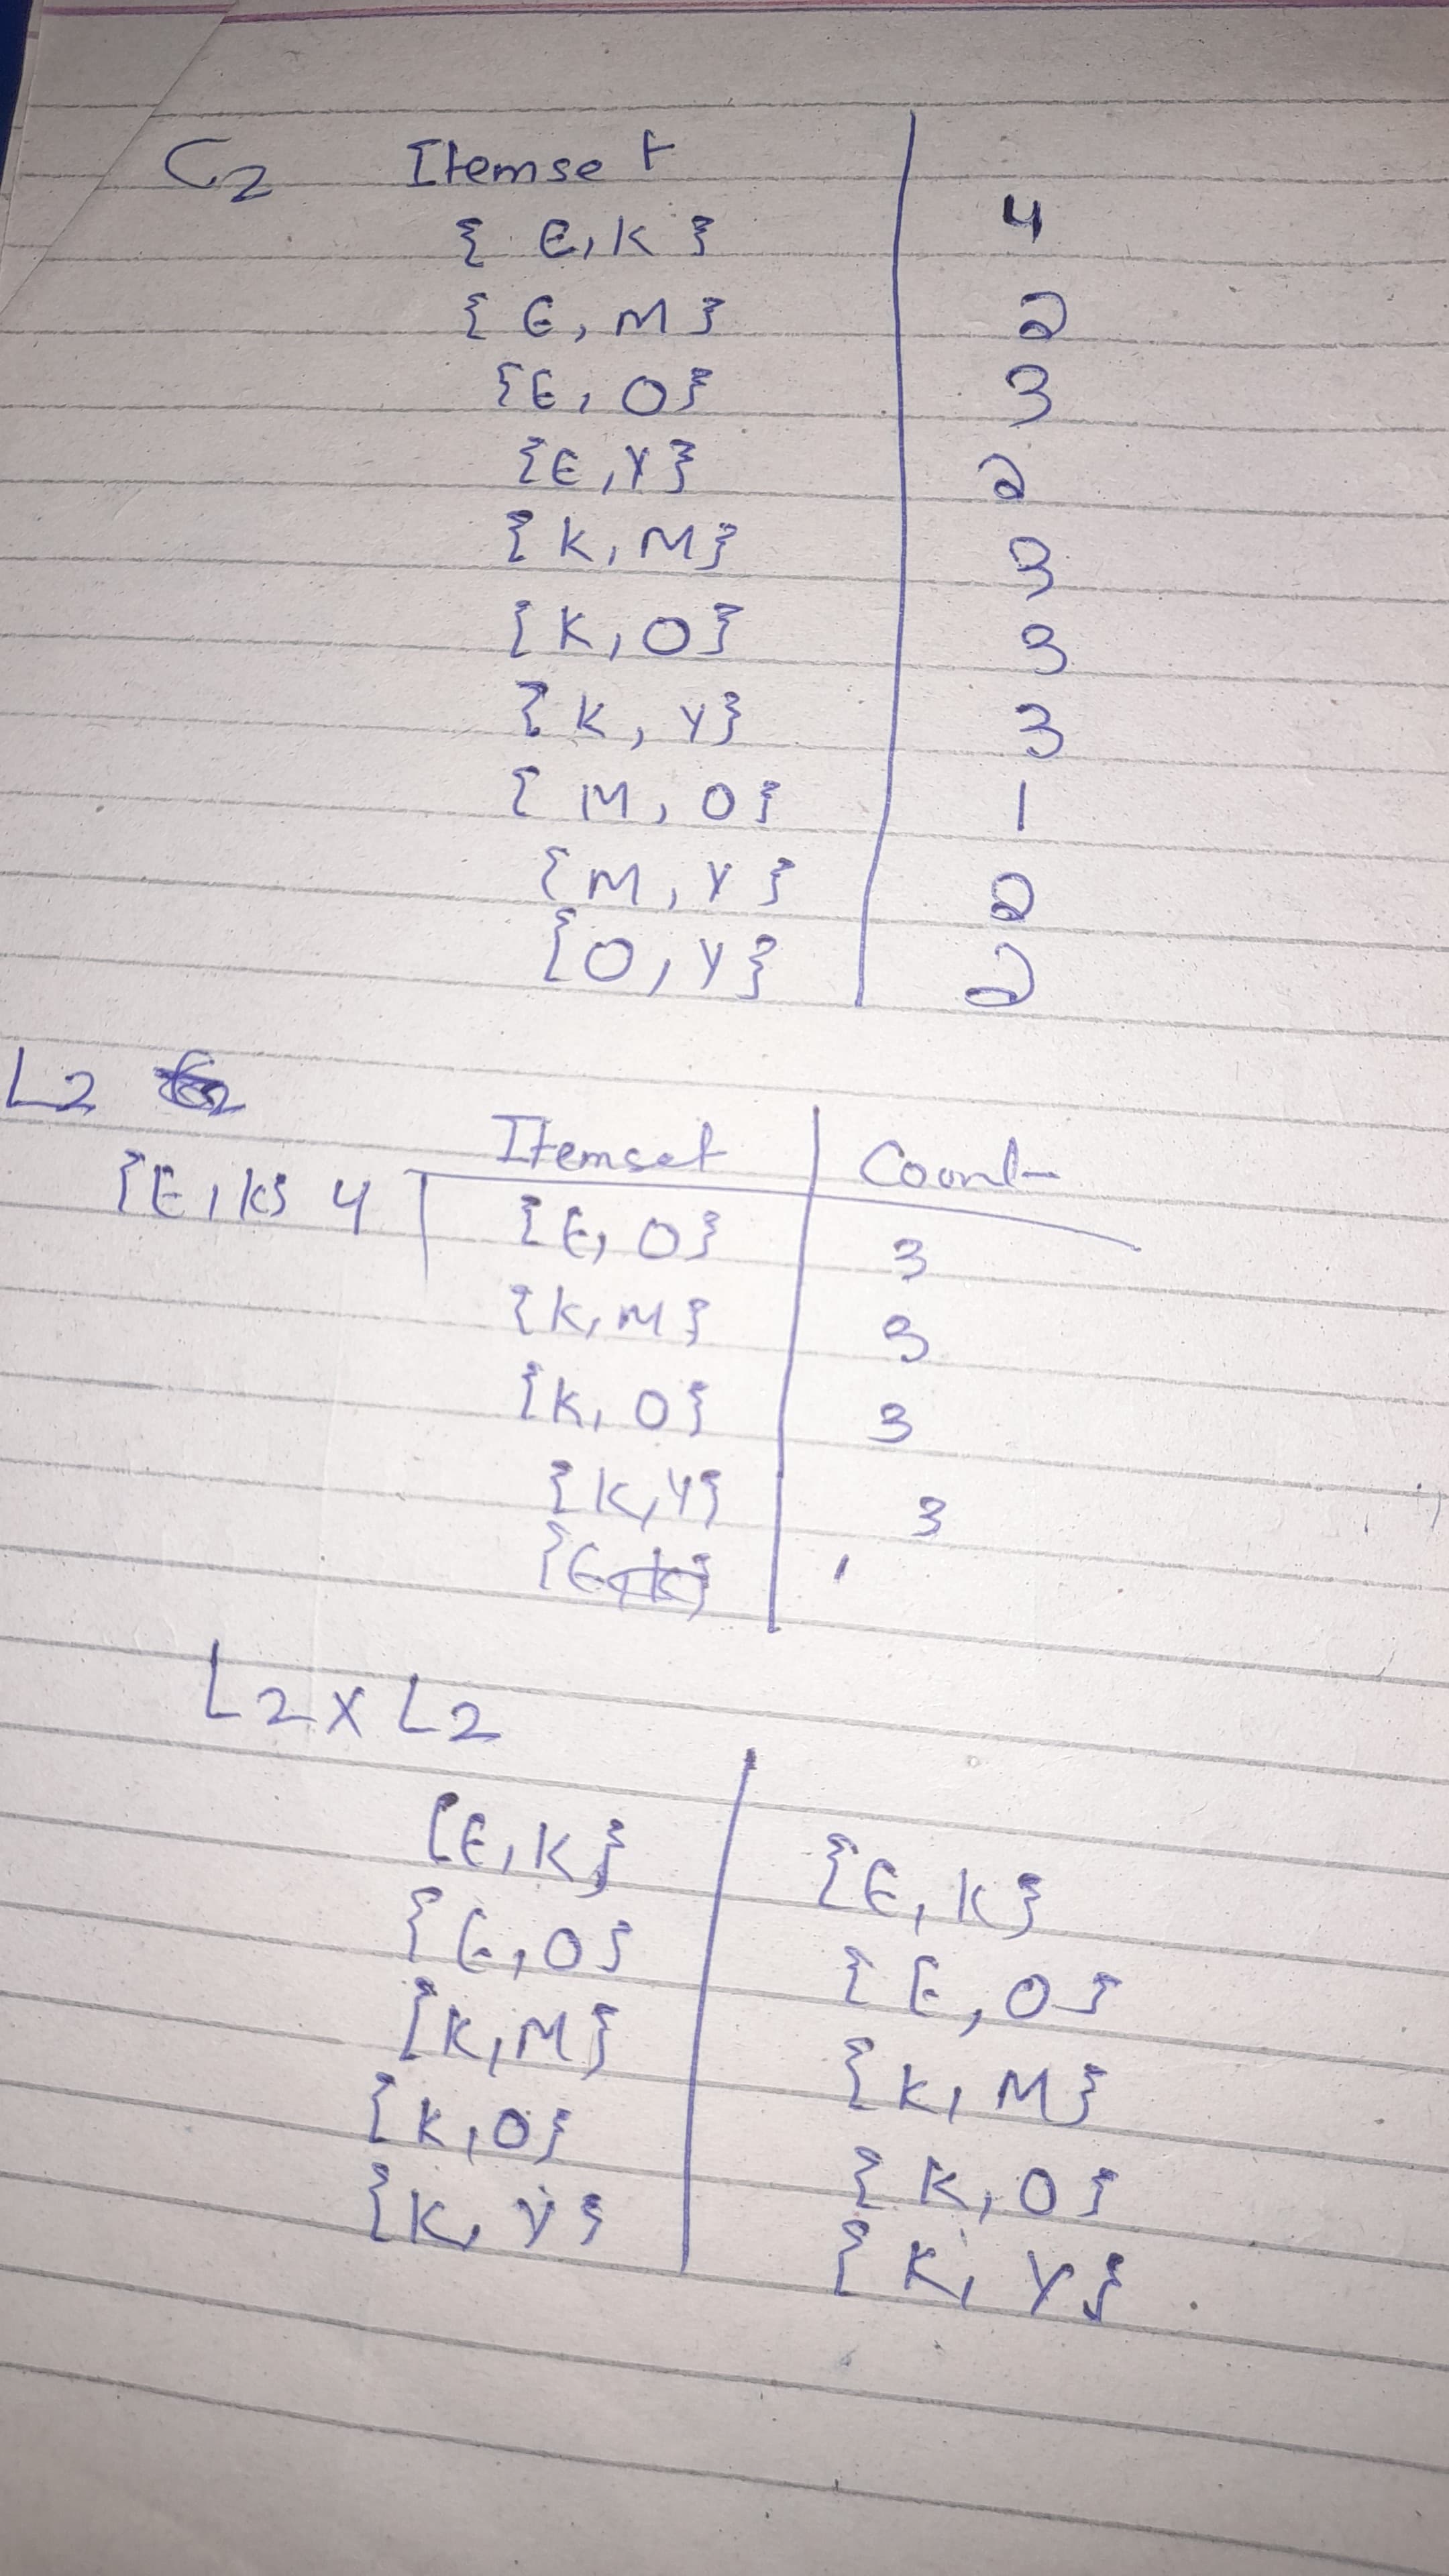 C2 Itemset
{ E, K } 4
{ E, M } 2
{E, O} 3
{E, Y} 2
{K, M} 3
{K, O} 3
{K, Y} 3
{ M, O} 1
{M, Y} 2
{O, Y} 2
L2
Itemset Count
{E, K} 4 {E, O} 3
{K, M} 3
{K, O} 3
{K, Y} 3
L2 x L2
{E, K} {E, K}
{E, O} {E, O}
{K, M} {K, M}
{K, O} {K, O}
{K, Y} {K, Y}